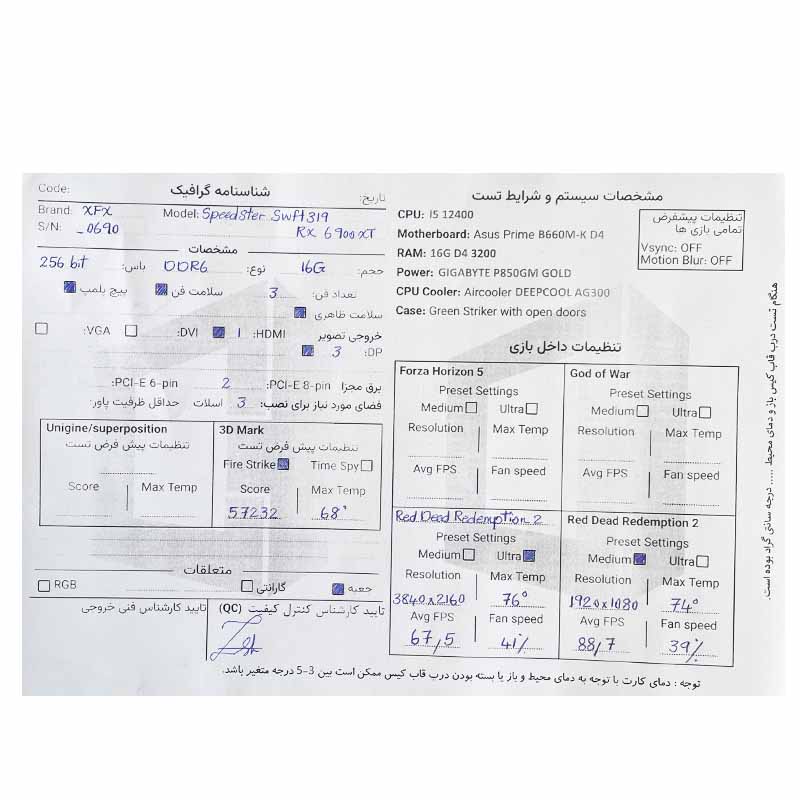 Code:
شناسنامه گرافیک
تاریخ:
Brand: XFX
Model: Speedster Swft319
S/N: _0690
RX 6900XT
مشخصات
حجم: 16G نوع: DDR6 باس: 256 bit
تعداد فن: 3 سلامت فن پیچ پلمپ
سلامت ظاهری
خروجی تصویر HDMI: 1 DVI: VGA:
DP: 3
برق مجزا PCI-E 8-pin: 2 PCI-E 6-pin:
فضای مورد نیاز برای نصب: 3 اسلات حداقل ظرفیت پاور:
Unigine/superposition
تنظیمات پیش فرض تست
Score Max Temp
3D Mark
تنظیمات پیش فرض تست
Fire Strike Time Spy
Score Max Temp
57232 68°
متعلقات
جعبه گارانتی RGB
تایید کارشناس کنترل کیفیت (QC)
تایید کارشناس فنی خروجی
مشخصات سیستم و شرایط تست
CPU: I5 12400
Motherboard: Asus Prime B660M-K D4
RAM: 16G D4 3200
Power: GIGABYTE P850GM GOLD
CPU Cooler: Aircooler DEEPCOOL AG300
Case: Green Striker with open doors
تنظیمات پیشفرض
تمامی بازی ها
Vsync: OFF
Motion Blur: OFF
تنظیمات داخل بازی
Forza Horizon 5
Preset Settings
Medium Ultra
Resolution Max Temp
Avg FPS Fan speed
God of War
Preset Settings
Medium Ultra
Resolution Max Temp
Avg FPS Fan speed
Red Dead Redemption 2
Preset Settings
Medium Ultra
Resolution Max Temp
3840x2160 76°
Avg FPS Fan speed
67,5 41%
Red Dead Redemption 2
Preset Settings
Medium Ultra
Resolution Max Temp
1920x1080 74°
Avg FPS Fan speed
88,7 39%
هنگام تست درب قاب کیس باز و دمای محیط ..... درجه سانتی گراد بوده است.
توجه : دمای کارت با توجه به دمای محیط و باز یا بسته بودن درب قاب کیس ممکن است بین 3-5 درجه متغیر باشد.